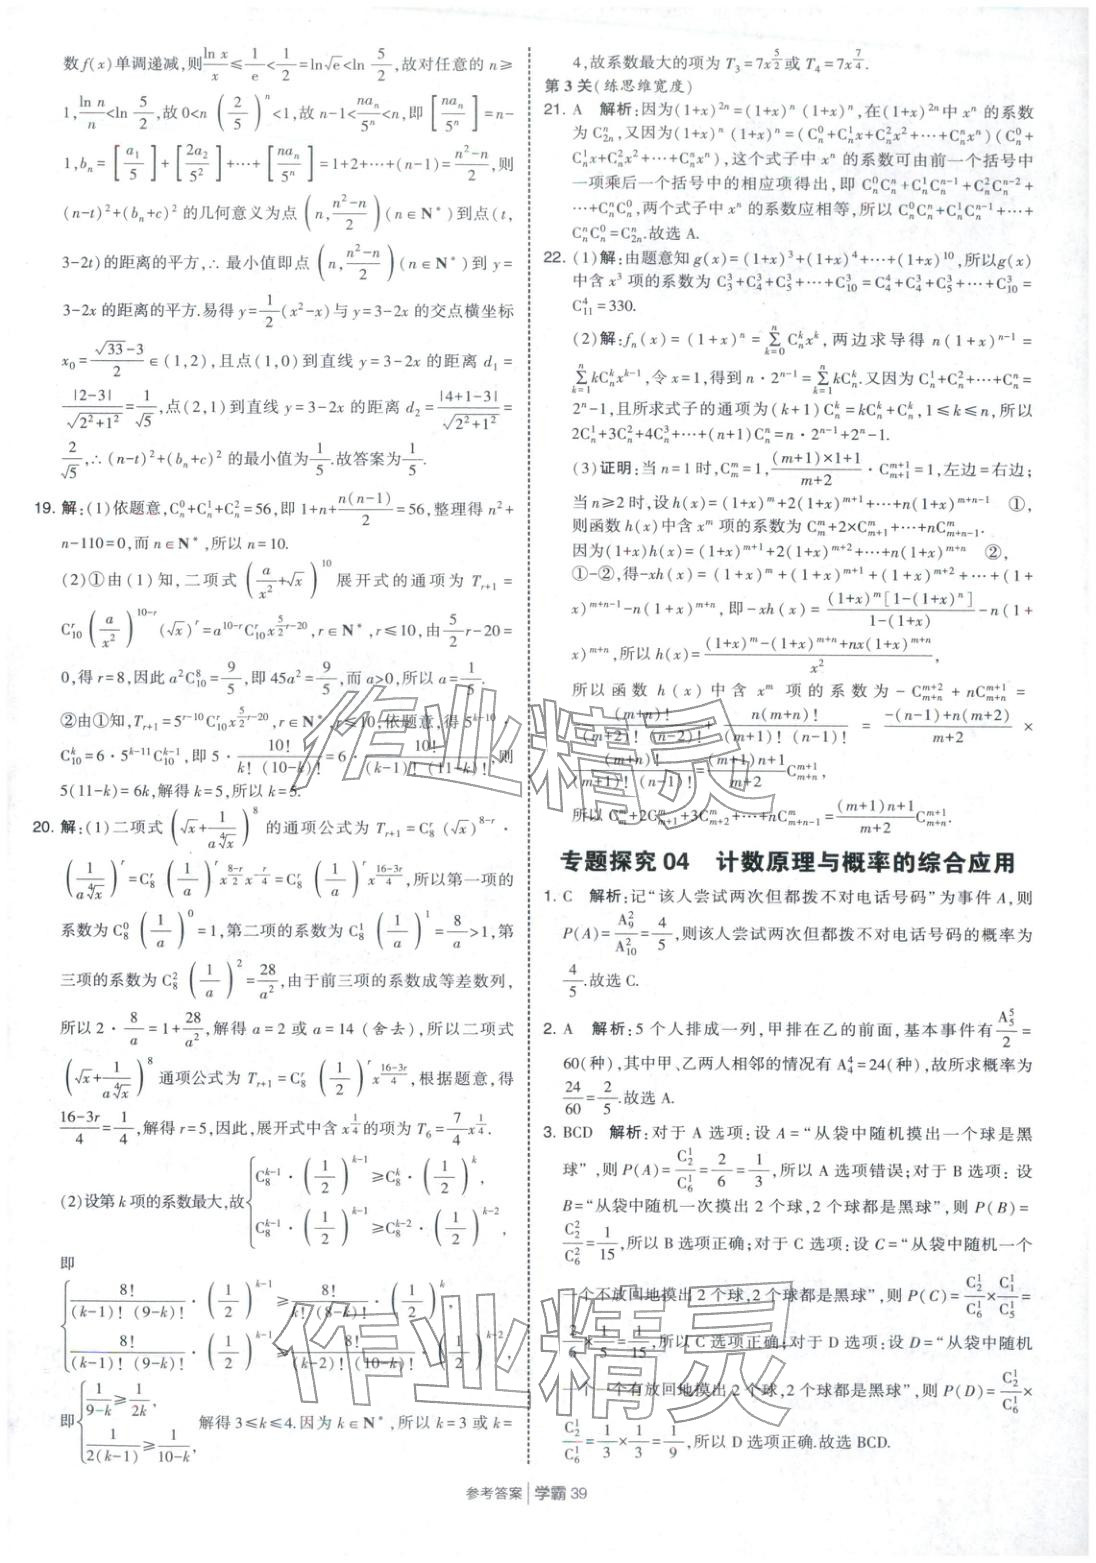 数f(x)单调递减,则$\frac{\ln x}{x}$≤$\frac{1}{e}$<$\frac{1}{2}$=ln√e<ln $\frac{5}{2}$,故对任意的 n≥
1,$\frac{\ln n}{n}$<ln $\frac{5}{2}$,故 0<n$\left(\frac{2}{5}\right)^n$<1,故 n-1<$\frac{na_n}{5^n}$<n,即$\left[\frac{na_n}{5^n}\right]$=n-
1,$b_n$=$\left[\frac{a_1}{5}\right]$+$\left[\frac{2a_2}{5^2}\right]$+…+$\left[\frac{na_n}{5^n}\right]$=1+2+…+(n-1)=$\frac{n^2-n}{2}$,则
$(n-t)^2+(b_n+c)^2$ 的几何意义为点$\left(n,\frac{n^2-n}{2}\right)$(n∈N*)到点(t,
3-2t)的距离的平方,∴ 最小值即点$\left(n,\frac{n^2-n}{2}\right)$(n∈N*)到 y=
3-2x 的距离的平方.易得 y=$\frac{1}{2}$(x²-x)与 y=3-2x 的交点横坐标
$x_0$=$\frac{\sqrt{33}-3}{2}$∈(1,2),且点(1,0)到直线 y=3-2x 的距离 $d_1$=
$\frac{|2-3|}{\sqrt{2^2+1^2}}$=$\frac{1}{\sqrt5}$,点(2,1)到直线 y=3-2x 的距离 $d_2$=$\frac{|4+1-3|}{\sqrt{2^2+1^2}}$=
$\frac{2}{\sqrt5}$,∴ $(n-t)^2+(b_n+c)^2$ 的最小值为$\frac{1}{5}$.故答案为$\frac{1}{5}$.
19. 解:(1)依题意,$C_n^0+C_n^1+C_n^2$=56,即 1+n+$\frac{n(n-1)}{2}$=56,整理得 n²+
n-110=0,而 n∈N*,所以 n=10.
(2)①由(1)知,二项式$\left(\frac{a}{x^2}+\sqrt{x}\right)^{10}$展开式的通项为 $T_{r+1}$=
$C_{10}^r\left(\frac{a}{x^2}\right)^{10-r}(\sqrt{x})^r=a^{10-r}C_{10}^r x^{\frac{5}{2}r-20}$,r∈N*,r≤10,由$\frac{5}{2}$r-20=
0,得 r=8,因此 $a^2C_{10}^8$=$\frac{9}{5}$,即 45a²=$\frac{9}{5}$,而 a>0,所以 a=$\frac{1}{5}$.
②由①知,$T_{r+1}=5^{r-10}C_{10}^r x^{\frac{5}{2}r-20}$,r∈N*,r≤10,依题意,得 $5^{k-10}$·
$C_{10}^k$=6·$5^{k-11}C_{10}^{k-1}$,即 5·$\frac{10!}{k!(10-k)!}$=6·$\frac{10!}{(k-1)!(11-k)!}$,则
5(11-k)=6k,解得 k=5,所以 k=5.
20. 解:(1)二项式$\left(\sqrt{x}+\frac{1}{a\sqrt[4]{x}}\right)^8$的通项公式为 $T_{r+1}=C_8^r(\sqrt{x})^{8-r}$·
$\left(\frac{1}{a\sqrt[4]{x}}\right)^r=C_8^r\left(\frac{1}{a}\right)^r x^{\frac{8-r}{2}}x^{-\frac{r}{4}}=C_8^r\left(\frac{1}{a}\right)^r x^{\frac{16-3r}{4}}$,所以第一项的
系数为 $C_8^0\left(\frac{1}{a}\right)^0$=1,第二项的系数为 $C_8^1\left(\frac{1}{a}\right)^1$=$\frac{8}{a}$>1,第
三项的系数为 $C_8^2\left(\frac{1}{a}\right)^2$=$\frac{28}{a^2}$,由于前三项的系数成等差数列,
所以 2·$\frac{8}{a}$=1+$\frac{28}{a^2}$,解得 a=2 或 a=14(舍去),所以二项式
$\left(\sqrt{x}+\frac{1}{a\sqrt[4]{x}}\right)^8$通项公式为 $T_{r+1}=C_8^r\left(\frac{1}{2}\right)^r x^{\frac{16-3r}{4}}$,根据题意,得
$\frac{16-3r}{4}$=$\frac{1}{4}$,解得 r=5,因此,展开式中含 $x^{\frac14}$的项为 $T_6$=$\frac{7}{4}x^{\frac14}$.
(2)设第 k 项的系数最大,故$\begin{cases}C_8^{k-1}\cdot\left(\frac12\right)^{k-1}\ge C_8^k\cdot\left(\frac12\right)^k,\\C_8^{k-1}\cdot\left(\frac12\right)^{k-1}\ge C_8^{k-2}\cdot\left(\frac12\right)^{k-2},\end{cases}$
即
$\begin{cases}\frac{8!}{(k-1)!(9-k)!}\cdot\left(\frac12\right)^{k-1}\ge\frac{8!}{k!(8-k)!}\cdot\left(\frac12\right)^k,\\\frac{8!}{(k-1)!(9-k)!}\cdot\left(\frac12\right)^{k-1}\ge\frac{8!}{(k-2)!(10-k)!}\cdot\left(\frac12\right)^{k-2},\end{cases}$
即$\begin{cases}\frac{1}{9-k}\ge\frac{1}{2k},\\\frac{1}{2(k-1)}\ge\frac{1}{10-k},\end{cases}$解得 3≤k≤4.因为 k∈N*,所以 k=3 或 k=
4,故系数最大的项为 $T_3=7x^{\frac52}$或 $T_4=7x^{\frac74}$.
第 3 关(练思维宽度)
21. A 解析:因为$(1+x)^{2n}=(1+x)^n(1+x)^n$,在$(1+x)^{2n}$中 $x^n$ 的系数
为 $C_{2n}^n$,又因为$(1+x)^n(1+x)^n=(C_n^0+C_n^1x+C_n^2x^2+…+C_n^nx^n)(C_n^0+$
$C_n^1x+C_n^2x^2+…+C_n^nx^n)$,这个式子中 $x^n$ 的系数可由前一个括号中
一项乘后一个括号中的相应项得出,即 $C_n^0C_n^n+C_n^1C_n^{n-1}+C_n^2C_n^{n-2}$+
…+$C_n^nC_n^0$,两个式子中 $x^n$ 的系数应相等,所以 $C_n^0C_n^n+C_n^1C_n^{n-1}$+…+
$C_n^nC_n^0=C_{2n}^n$.故选 A.
22. (1)解:由题意知 g(x)=$(1+x)^3+(1+x)^4+…+(1+x)^{10}$,所以g(x)
中含 x³ 项的系数为 $C_3^3+C_4^3+C_5^3+…+C_{10}^3=C_4^4+C_4^3+C_5^3+…+C_{10}^3$=
$C_{11}^4$=330.
(2)解:$f_n(x)=(1+x)^n=\sum_{k=0}^n C_n^kx^k$,两边求导得 $n(1+x)^{n-1}$=
$\sum_{k=1}^n kC_n^kx^{k-1}$,令 x=1,得到 $n·2^{n-1}=\sum_{k=1}^n kC_n^k$.又因为 $C_n^1+C_n^2+…+C_n^n$=
$2^n-1$,且所求式子的通项为$(k+1)C_n^k=kC_n^k+C_n^k$,1≤k≤n,所以
$2C_n^1+3C_n^2+4C_n^3+…+(n+1)C_n^n=n·2^{n-1}+2^n-1$.
(3)证明:当 n=1 时,$C_m^m$=1,$\frac{(m+1)×1+1}{m+2}·C_{m+1}^{m+1}$=1,左边=右边;
当 n≥2 时,设 h(x)=$(1+x)^m+2(1+x)^{m+1}+…+n(1+x)^{m+n-1}$ ①,
则函数 h(x)中含 $x^m$ 项的系数为 $C_m^m+2×C_{m+1}^m+…+nC_{m+n-1}^m$.
因为(1+x)h(x)=$(1+x)^{m+1}+2(1+x)^{m+2}+…+n(1+x)^{m+n}$ ②,
①-②,得-xh(x)=$(1+x)^m+(1+x)^{m+1}+(1+x)^{m+2}$+…+(1+
$x)^{m+n-1}-n(1+x)^{m+n}$,即-xh(x)=$\frac{(1+x)^m[1-(1+x)^n]}{1-(1+x)}$-n(1+
$x)^{m+n}$,所以 h(x)=$\frac{(1+x)^m-(1+x)^{m+n}+nx(1+x)^{m+n}}{x^2}$,
所以函数 h(x)中含 $x^m$ 项的系数为 $-C_{m+n}^{m+2}+nC_{m+n}^{m+1}$=
$-\frac{(m+n)!}{(m+2)!(n-2)!}+\frac{n(m+n)!}{(m+1)!(n-1)!}=\frac{-(n-1)+n(m+2)}{m+2}$×
$\frac{(m+n)!}{(m+1)!(n-1)!}=\frac{(m+1)n+1}{m+2}C_{m+n}^{m+1}$,
所以 $C_m^m+2C_{m+1}^m+3C_{m+2}^m+…+nC_{m+n-1}^m=\frac{(m+1)n+1}{m+2}C_{m+n}^{m+1}$.
专题探究 04 计数原理与概率的综合应用
1. C 解析:记“该人尝试两次但都拨不对电话号码”为事件 A,则
P(A)=$\frac{A_9^2}{A_{10}^2}$=$\frac{4}{5}$,则该人尝试两次但都拨不对电话号码的概率为
$\frac{4}{5}$.故选 C.
2. A 解析:5 个人排成一列,甲排在乙的前面,基本事件有$\frac{A_5^5}{2}$=
60(种),其中甲、乙两人相邻的情况有 $A_4^4$=24(种),故所求概率为
$\frac{24}{60}$=$\frac{2}{5}$.故选 A.
3. BCD 解析:对于 A 选项:设 A=“从袋中随机摸出一个球是黑
球”,则 P(A)=$\frac{C_2^1}{C_6^1}$=$\frac{2}{6}$=$\frac{1}{3}$,所以 A 选项错误;对于 B 选项:设
B=“从袋中随机一次摸出 2 个球,2 个球都是黑球”,则 P(B)=
$\frac{C_2^2}{C_6^2}$=$\frac{1}{15}$,所以 B 选项正确;对于 C 选项:设 C=“从袋中随机一个
一个不放回地摸出 2 个球,2 个球都是黑球”,则 P(C)=$\frac{C_2^1}{C_6^1}×\frac{C_1^1}{C_5^1}$=
$\frac{2}{6}×\frac{1}{5}$=$\frac{1}{15}$,所以 C 选项正确;对于 D 选项:设 D=“从袋中随机
一个一个有放回地摸出 2 个球,2 个球都是黑球”,则 P(D)=$\frac{C_2^1}{C_6^1}$×
$\frac{C_2^1}{C_6^1}$=$\frac{1}{3}×\frac{1}{3}$=$\frac{1}{9}$,所以 D 选项正确.故选 BCD.
参考答案 学霸 39
作业精灵
作业精灵